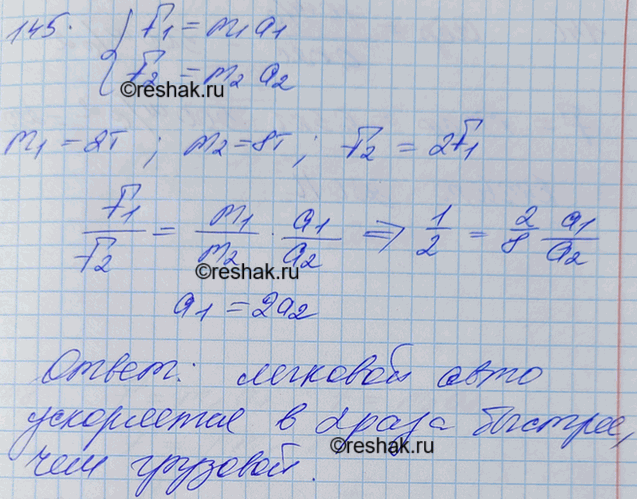 145. { F₁ = m₁a₁
F₂ = m₂ a₂
©reshak.ru
m₁ = 2т ; m₂ = 8т ; F₂ = 2F₁
F₁/F₂ = m₁/m₂ · a₁/a₂ => 1/2 = 2/8 a₁/a₂
©reshak.ru
a₁ = 2a₂
Ответ: легковой авто
ускоряется в 2 раза быстрее,
©reshak.ru
чем грузовой.